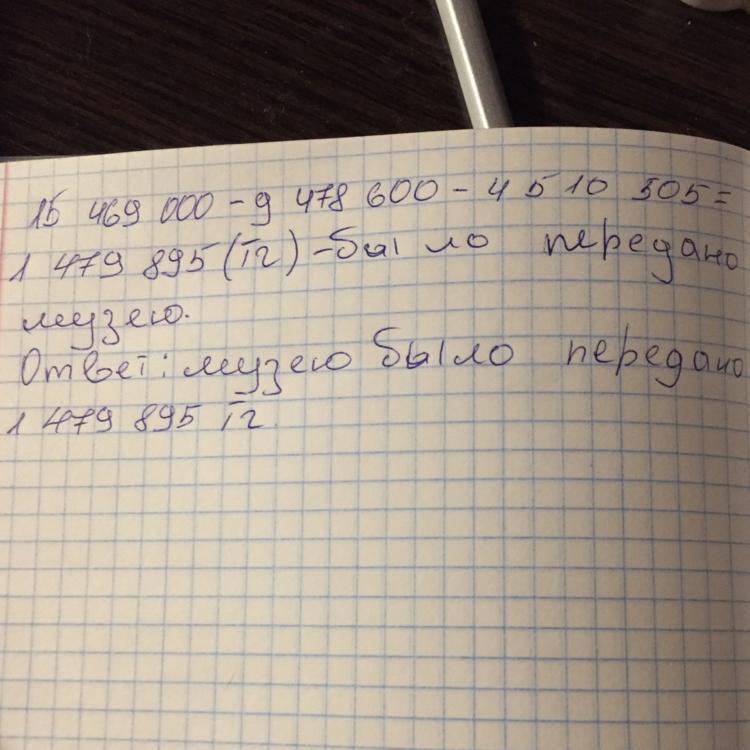 15 469 000 - 9 478 600 - 4 510 505 =
1 479 895 (тг) - было передано
музею.
Ответ: музею было передано
1 479 895 тг.